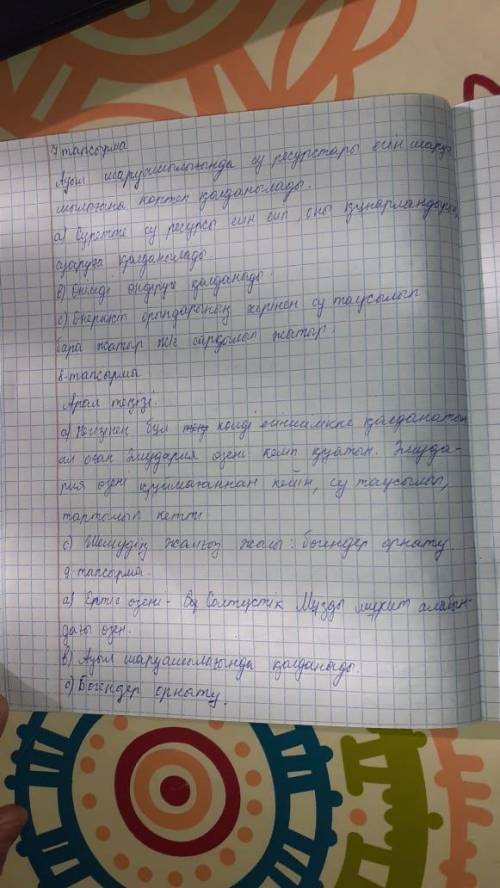 7 тапсырма
Ауыл шаруашылығында су ресурстары егін шаруа
шылығына көптеп қолданылады.
а) Суретте су ресурсы егін егіп, оны құнарландыру,
суаруға қолданылады.
в) Өнімді өндіруге қолданыды.
с) Өнеркәсіп орындарының кеңінен су таусылып
бара жатыр жіе сарқылып жатыр.
8-тапсырма
Арал теңізі.
а) Негізінен бұл көлді егіншілікке қолданатын
ал оған Әмудария өзені келіп құятын. Әмуда-
рия өзені құймағаннан кейін, су таусылып,
тартылып кетті.
с) Шешудің жалғыз жолы: бөгендер орнату.
9-тапсырма.
а) Ертіс өзені - Солтүстік Мұзды мұхит алабын-
дағы өзен.
в) Ауыл шаруашылығында қолданыды.
с) Бөгендер орнату.